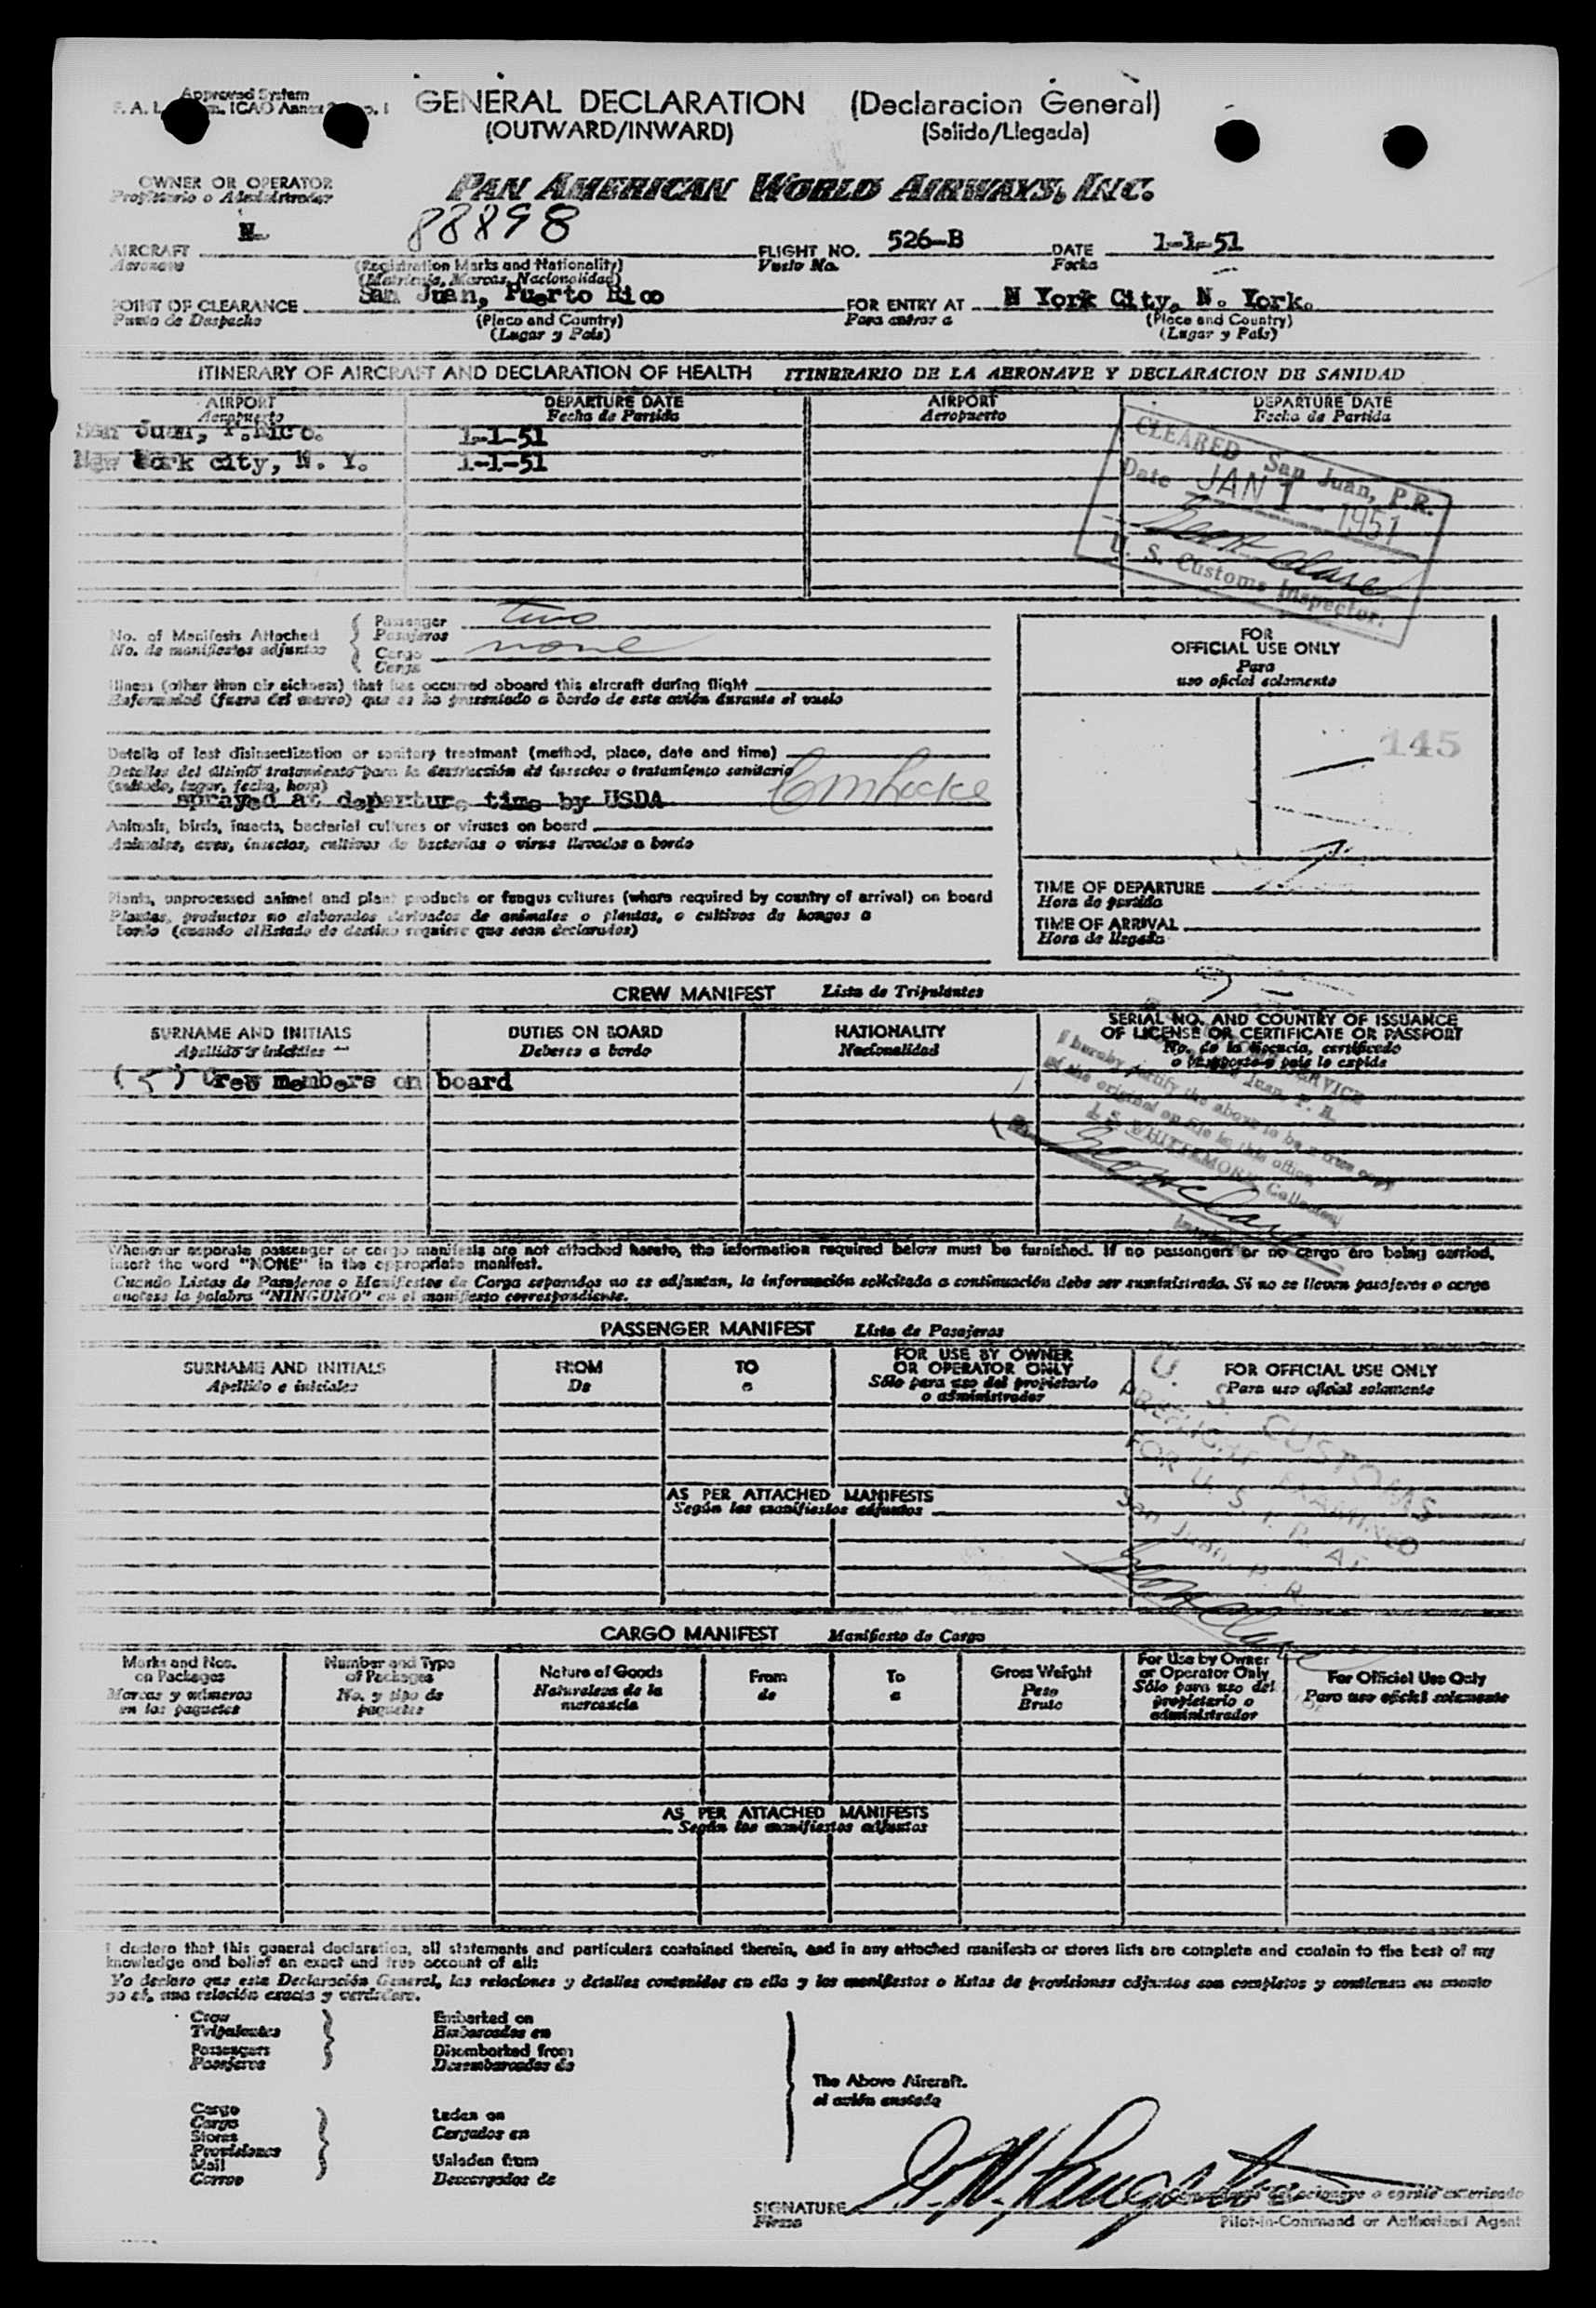 Approved System
GENERAL DECLARATION (Declaracion General)
(OUTWARD/INWARD) (Salida/Llegada)
OWNER OR OPERATOR
Propietario o Administrador
PAN AMERICAN WORLD AIRWAYS, INC.
AIRCRAFT N- 88898 FLIGHT NO. 526-B DATE 1-1-51
Aeronave (Registration Marks and Nationality) Vuelo No. Fecha
(Matricula, Marcas, Nacionalidad)
POINT OF CLEARANCE San Juan, Puerto Rico FOR ENTRY AT N York City, N. York.
Punto de Despacho (Place and Country) Para entrar a (Place and Country)
(Lugar y País) (Lugar y País)
ITINERARY OF AIRCRAFT AND DECLARATION OF HEALTH ITINERARIO DE LA AERONAVE Y DECLARACION DE SANIDAD
AIRPORT DEPARTURE DATE AIRPORT DEPARTURE DATE
Aeropuerto Fecha de Partida Aeropuerto Fecha de Partida
San Juan, P.Rico. 1-1-51
New York city, N. Y. 1-1-51
CLEARED San Juan, P.R.
Date JAN 1 - 1951
U. S. Customs Inspector.
No. of Manifests Attached Passenger two
No. de manifiestos adjuntos Pasajeros
Cargo none
Carga
Illness (other than air sickness) that has occurred aboard this aircraft during flight
Enfermedad (fuera del mareo) que se ha presentado a bordo de este avión durante el vuelo
FOR
OFFICIAL USE ONLY
Para
uso oficial solamente
145
Details of last disinsectization or sanitary treatment (method, place, date and time)
Detalles del último tratamiento para la destrucción de insectos o tratamiento sanitario
(método, lugar, fecha, hora)
sprayed at departure time by USDA
Animals, birds, insects, bacterial cultures or viruses on board
Animales, aves, insectos, cultivos de bacterias o virus llevados a bordo
Plants, unprocessed animal and plant products or fungus cultures (where required by country of arrival) on board
Plantas, productos no elaborados derivados de animales o plantas, o cultivos de hongos a
bordo (cuando el Estado de destino requiere que sean declarados)
TIME OF DEPARTURE
Hora de partida
TIME OF ARRIVAL
Hora de llegada
CREW MANIFEST Lista de Tripulantes
SURNAME AND INITIALS DUTIES ON BOARD NATIONALITY SERIAL NO. AND COUNTRY OF ISSUANCE
OF LICENSE OR CERTIFICATE OR PASSPORT
Apellido e iniciales Deberes a bordo Nacionalidad No. de la licencia, certificado
o pasaporte y país lo expide
( 5 ) Crew members on board
I hereby certify the above to be a true copy
of the original on file in this office
L. S. WHITTEMORE, Collector
Whenever separate passenger or cargo manifests are not attached hereto, the information required below must be furnished. If no passengers or no cargo are being carried,
insert the word "NONE" in the appropriate manifest.
Cuando Listas de Pasajeros o Manifiestos de Carga separados no se adjuntan, la información solicitada a continuación debe ser suministrada. Si no se llevan pasajeros o carga
anotese la palabra "NINGUNO" en el manifiesto correspondiente.
PASSENGER MANIFEST Lista de Pasajeros
SURNAME AND INITIALS FROM TO FOR USE BY OWNER
OR OPERATOR ONLY FOR OFFICIAL USE ONLY
Apellido e iniciales De a Sólo para uso del propietario
o administrador Para uso oficial solamente
AS PER ATTACHED MANIFESTS
Según los manifiestos adjuntos
U. S. CUSTOMS
PREFLIGHT EXAMINED
FOR U. S. I. R. AT
San Juan, P. R.
CARGO MANIFEST Manifiesto de Carga
Marks and Nos.
on Packages
Marcas y números
en los paquetes
Number and Type
of Packages
No. y tipo de
paquetes
Nature of Goods
Naturaleza de la
mercancía
From
de
To
a
Gross Weight
Peso
Bruto
For Use by Owner
or Operator Only
Sólo para uso del
propietario o
administrador
For Official Use Only
Para uso oficial solamente
AS PER ATTACHED MANIFESTS
Según los manifiestos adjuntos
I declare that this general declaration, all statements and particulars contained therein, and in any attached manifests or stores lists are complete and contain to the best of my
knowledge and belief an exact and true account of all:
Yo declaro que esta Declaración General, las relaciones y detalles contenidos en ella y los manifiestos o listas de provisiones adjuntos son completos y contienen en cuanto
yo sé, una relación exacta y verdadera.
Crew Embarked on
Tripulantes Embarcados en
Passengers Disembarked from
Pasajeros Desembarcados de
The Above Aircraft.
el avión anotado
Cargo Laden on
Cargo Cargados en
Stores
Provisiones Unladen from
Mail
Correo Descargados de
SIGNATURE
Firma
Pilot-in-Command or Authorized Agent